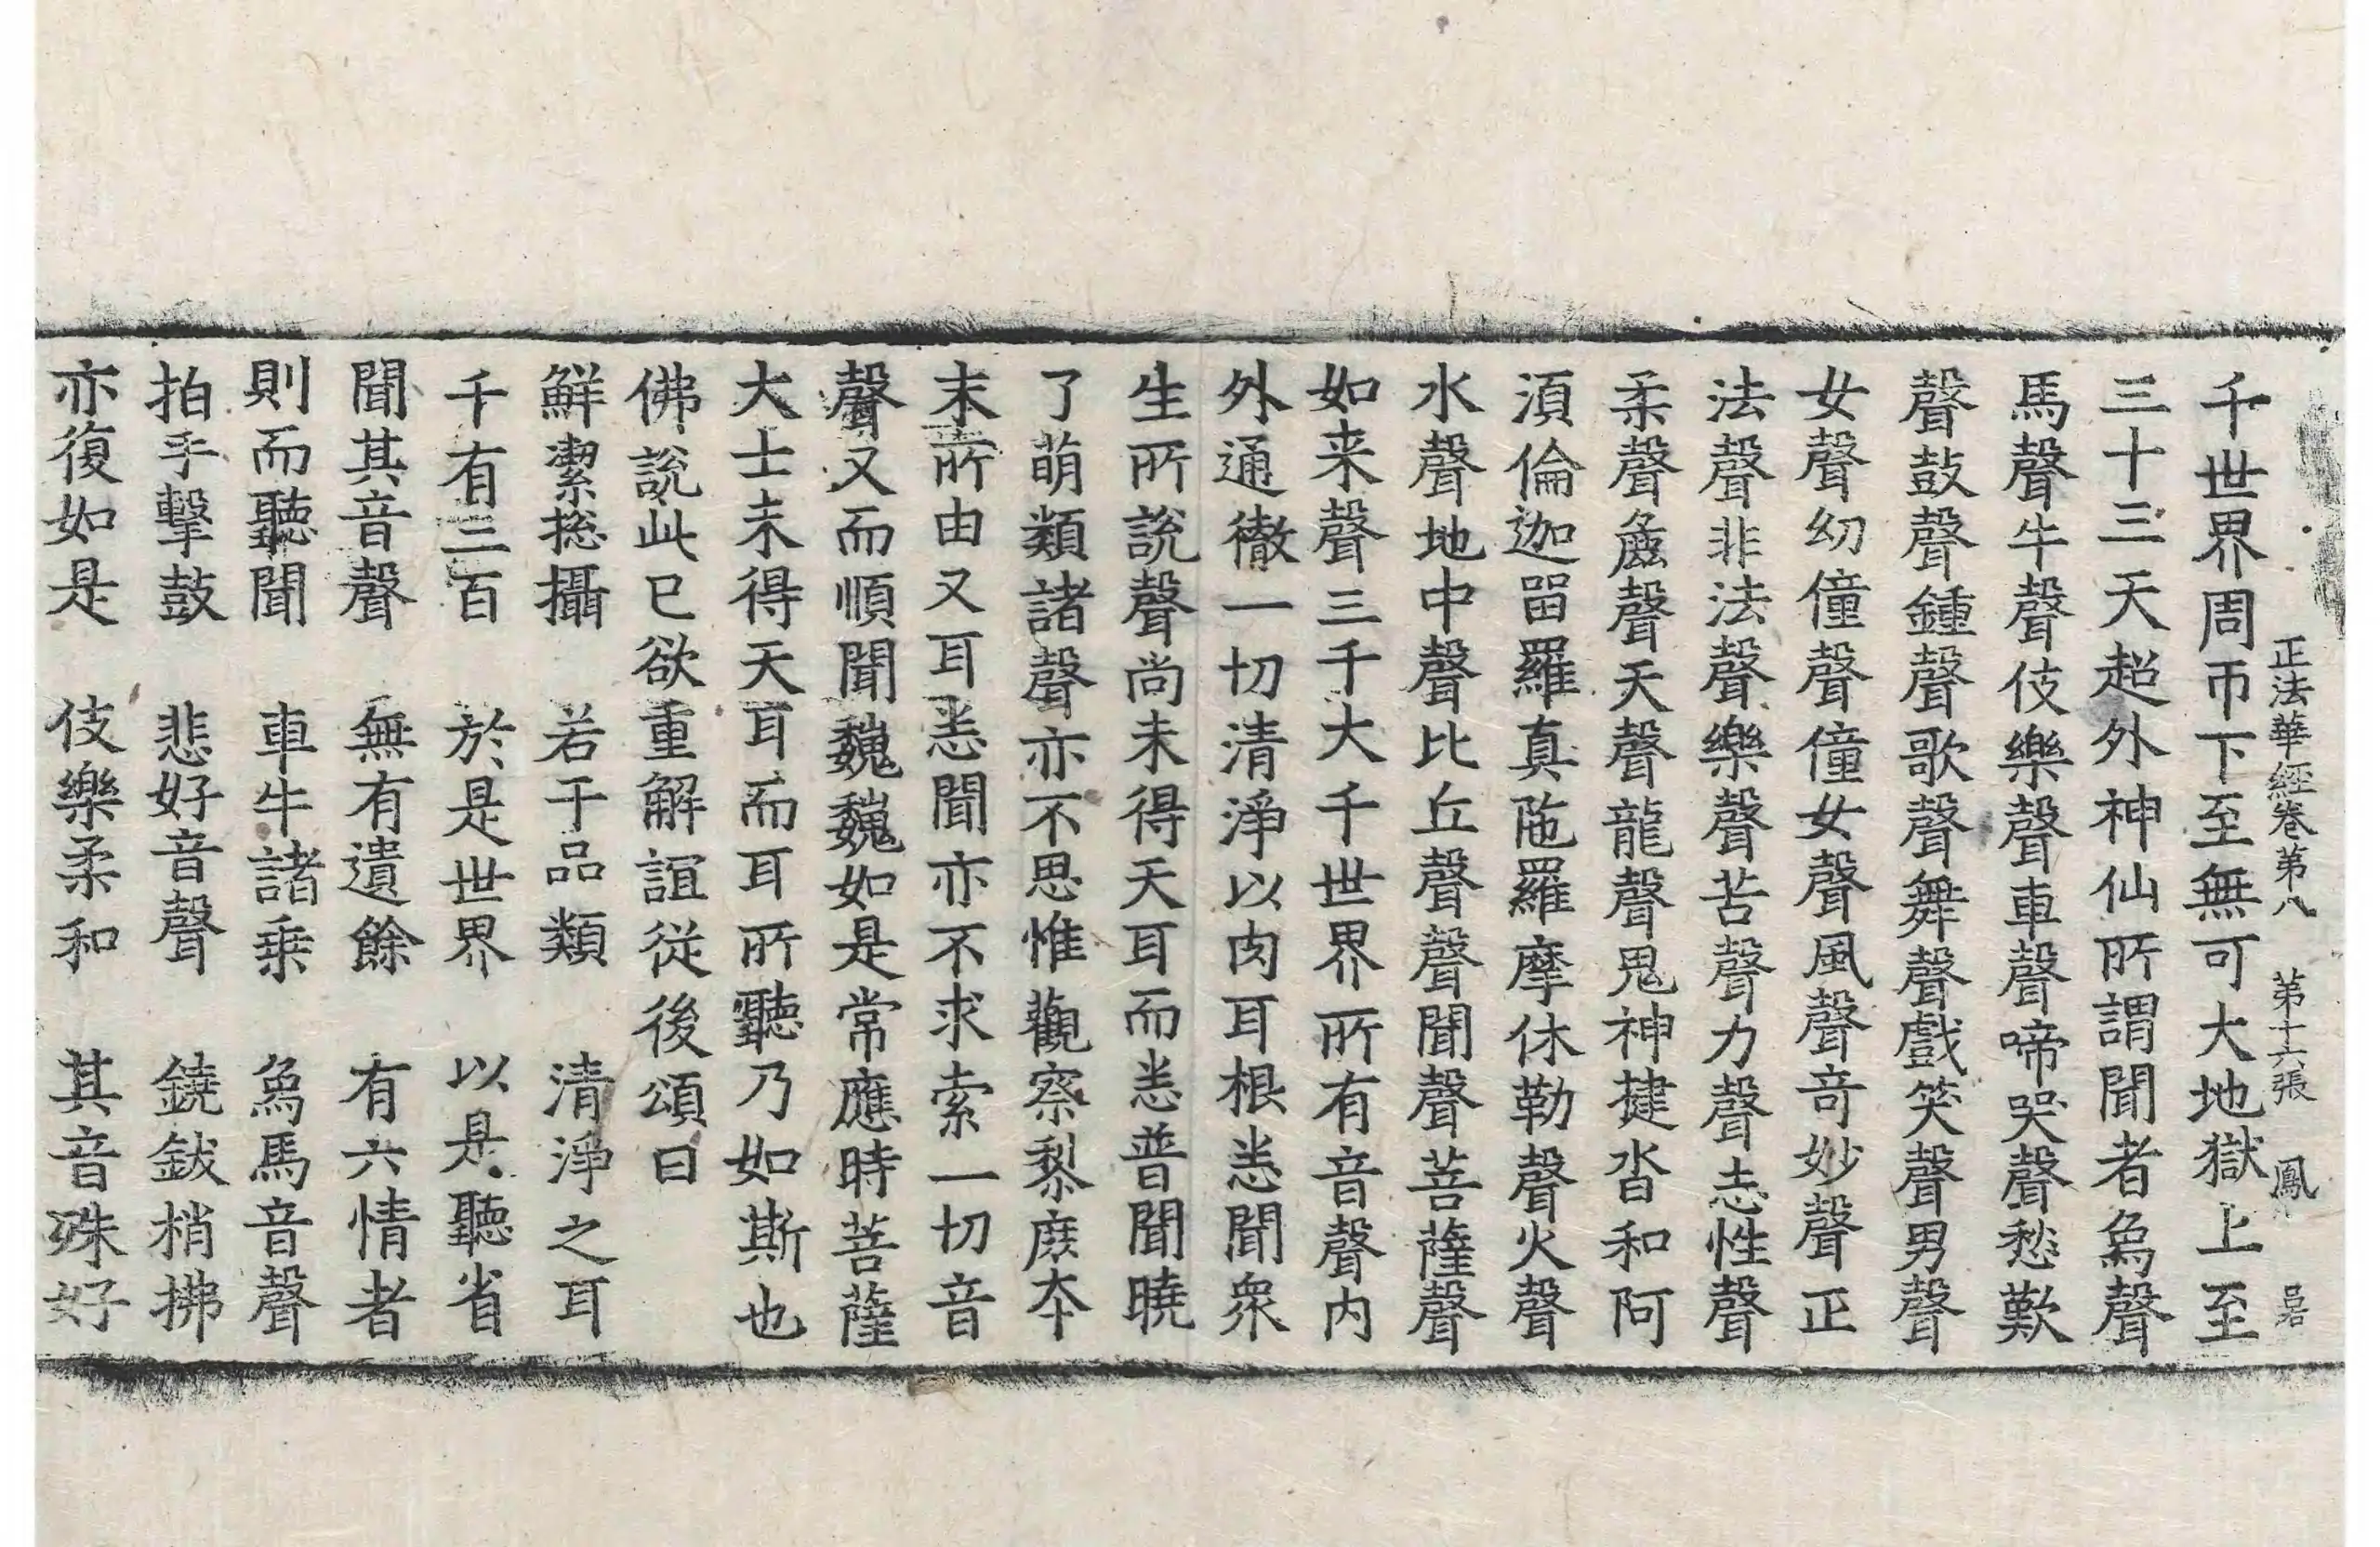 正法華經卷第八　第十六張　鳳
千世界周帀下至無可大地獄上至
三十三天超外神仙所謂聞者𤉢聲
馬聲牛聲伎樂聲車聲啼哭聲愁歎
聲鼓聲鍾聲歌聲舞聲戲笑聲男聲
女聲幼僮聲僮女聲風聲竒妙聲正
法聲非法聲樂聲苦聲力聲志性聲
柔聲麁聲天聲龍聲鬼神揵沓和阿
湏倫迦畱羅真陁羅摩休勒聲火聲
水聲地中聲比丘聲聲聞聲菩薩聲
如来聲三千大千世界所有音聲内
外通徹一切清淨以肉耳根悉聞衆
生所說聲尚未得天耳而悉普聞曉
了萌類諸聲亦不思惟觀察黎庶夲
末所由又耳悉聞亦不求索一切音
聲又而順聞魏魏如是常應時菩薩
大士未得天耳而耳所聽乃如斯也
佛說此已欲重解誼從後頌曰
鮮潔捴攝　若干品類　清淨之耳
千有二百　於是世界　以是聽省
聞其音聲　無有遺餘　有六情者
則而聽聞　車牛諸乗　𤉢馬音聲
拍手擊鼓　悲好音聲　鐃鈸梢拂
亦復如是　伎樂柔和　其音殊好